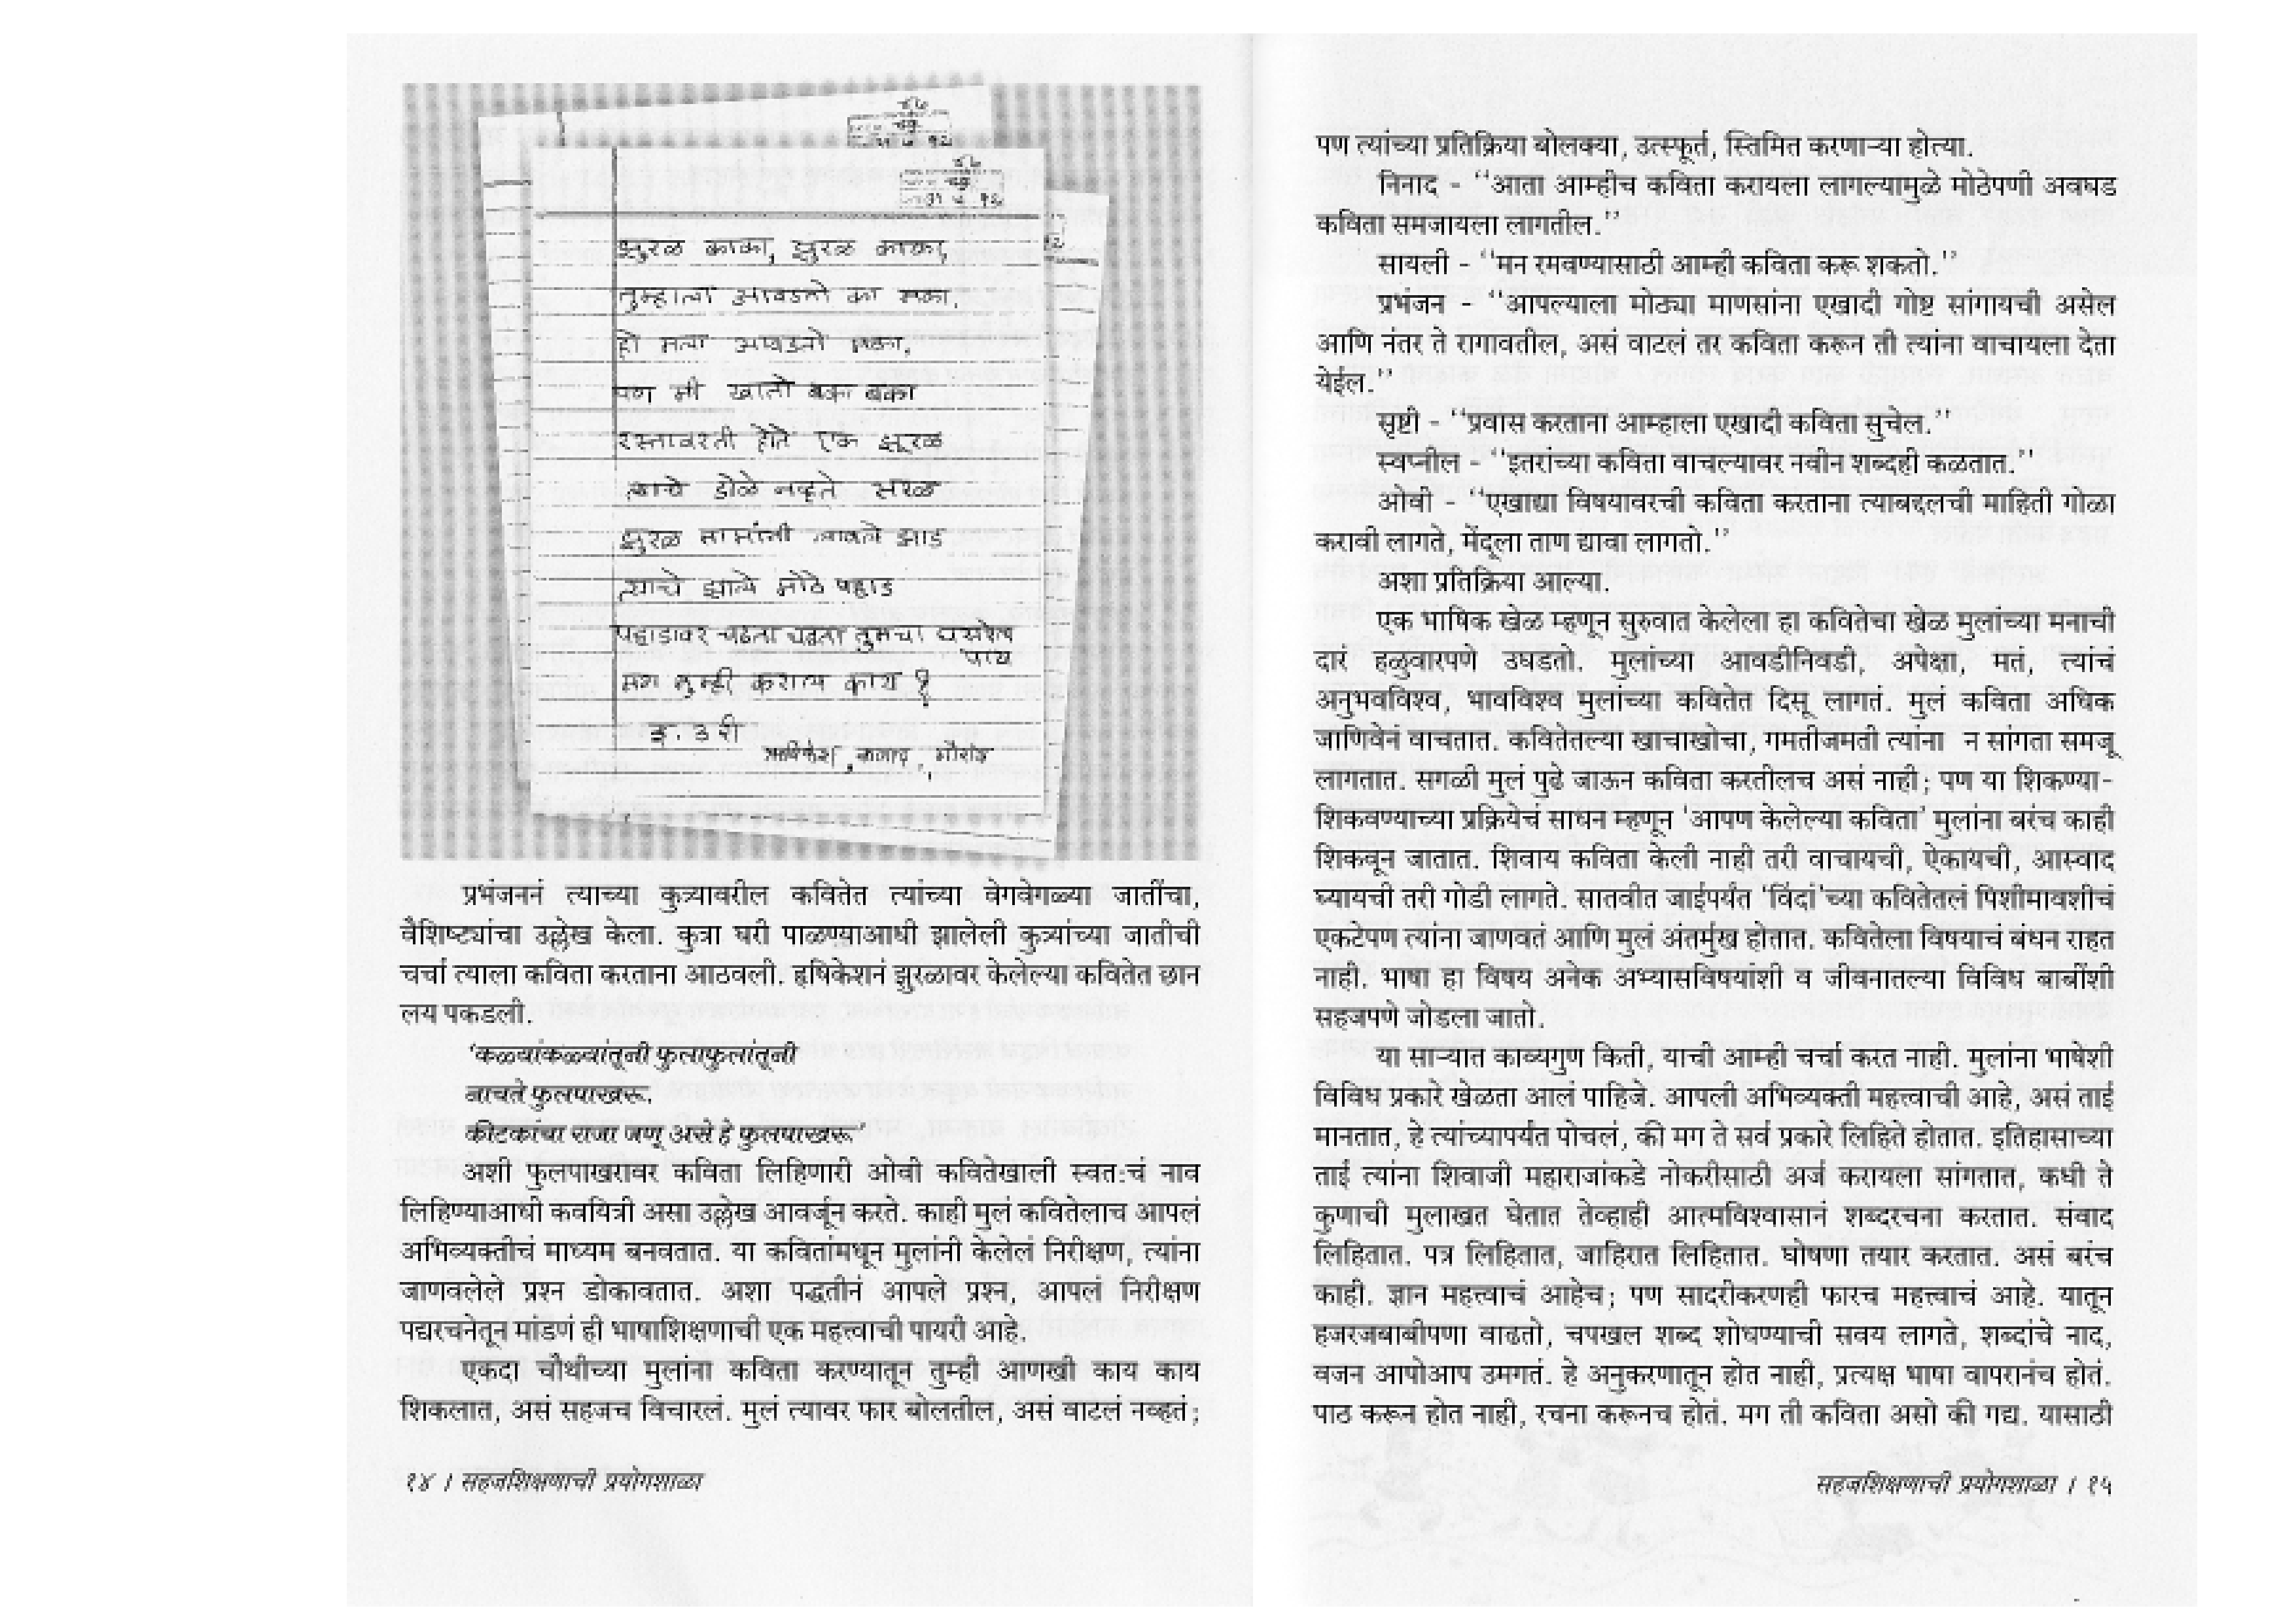 झुरळ काका, झुरळ काका,
तुम्हाला आवडतो का मका.
हो मला आवडतो मका,
पण मी खातो बका बका
रस्तावरती होते एक झुरळ
त्याचे डोळे नव्हते सरळ
झुरळ लावले झाड
त्याचे झाले मोठे पहाड
पहाडावर चढता चढता तुमचा घसरेल
पाय
मग तुम्ही कराल काय ?
इ. ३ री
प्रभंजननं त्याच्या कुत्र्यावरील कवितेत त्यांच्या वेगवेगळ्या जातींचा,
वैशिष्ट्यांचा उल्लेख केला. कुत्रा घरी पाळण्याआधी झालेली कुत्र्यांच्या जातीची
चर्चा त्याला कविता करताना आठवली. हृषिकेशनं झुरळावर केलेल्या कवितेत छान
लय पकडली.
'कळ्यांकळ्यांतूनी फुलाफुलांतूनी
नाचते फुलपाखरू.
कीटकांचा राजा जणू असे हे फुलपाखरू'
अशी फुलपाखरावर कविता लिहिणारी ओवी कवितेखाली स्वत:चं नाव
लिहिण्याआधी कवयित्री असा उल्लेख आवर्जून करते. काही मुलं कवितेलाच आपलं
अभिव्यक्तीचं माध्यम बनवतात. या कवितांमधून मुलांनी केलेलं निरीक्षण, त्यांना
जाणवलेले प्रश्न डोकावतात. अशा पद्धतीनं आपले प्रश्न, आपलं निरीक्षण
पद्यरचनेतून मांडणं ही भाषाशिक्षणाची एक महत्त्वाची पायरी आहे.
एकदा चौथीच्या मुलांना कविता करण्यातून तुम्ही आणखी काय काय
शिकलात, असं सहजच विचारलं. मुलं त्यावर फार बोलतील, असं वाटलं नव्हतं;
१४ । सहजशिक्षणाची प्रयोगशाळा
पण त्यांच्या प्रतिक्रिया बोलक्या, उत्स्फूर्त, स्तिमित करणाऱ्या होत्या.
निनाद - ‘‘आता आम्हीच कविता करायला लागल्यामुळे मोठेपणी अवघड
कविता समजायला लागतील.’’
सायली - ‘‘मन रमवण्यासाठी आम्ही कविता करू शकतो.’’
प्रभंजन - ‘‘आपल्याला मोठ्या माणसांना एखादी गोष्ट सांगायची असेल
आणि नंतर ते रागावतील, असं वाटलं तर कविता करून ती त्यांना वाचायला देता
येईल.’’
सृष्टी - ‘‘प्रवास करताना आम्हाला एखादी कविता सुचेल.’’
स्वप्नील - ‘‘इतरांच्या कविता वाचल्यावर नवीन शब्दही कळतात.’’
ओवी - ‘‘एखाद्या विषयावरची कविता करताना त्याबद्दलची माहिती गोळा
करावी लागते, मेंदूला ताण द्यावा लागतो.’’
अशा प्रतिक्रिया आल्या.
एक भाषिक खेळ म्हणून सुरुवात केलेला हा कवितेचा खेळ मुलांच्या मनाची
दारं हळुवारपणे उघडतो. मुलांच्या आवडीनिवडी, अपेक्षा, मतं, त्यांचं
अनुभवविश्व, भावविश्व मुलांच्या कवितेत दिसू लागतं. मुलं कविता अधिक
जाणिवेनं वाचतात. कवितेतल्या खाचाखोचा, गमतीजमती त्यांना न सांगता समजू
लागतात. सगळी मुलं पुढे जाऊन कविता करतीलच असं नाही; पण या शिकण्या-
शिकवण्याच्या प्रक्रियेचं साधन म्हणून 'आपण केलेल्या कविता' मुलांना बरंच काही
शिकवून जातात. शिवाय कविता केली नाही तरी वाचायची, ऐकायची, आस्वाद
घ्यायची तरी गोडी लागते. सातवीत जाईपर्यंत 'विंदां'च्या कवितेतलं पिशीमावशीचं
एकटेपण त्यांना जाणवतं आणि मुलं अंतर्मुख होतात. कवितेला विषयाचं बंधन राहत
नाही. भाषा हा विषय अनेक अभ्यासविषयांशी व जीवनातल्या विविध बाबींशी
सहजपणे जोडला जातो.
या साऱ्यात काव्यगुण किती, याची आम्ही चर्चा करत नाही. मुलांना भाषेशी
विविध प्रकारे खेळता आलं पाहिजे. आपली अभिव्यक्ती महत्त्वाची आहे, असं ताई
मानतात, हे त्यांच्यापर्यंत पोचलं, की मग ते सर्व प्रकारे लिहिते होतात. इतिहासाच्या
ताई त्यांना शिवाजी महाराजांकडे नोकरीसाठी अर्ज करायला सांगतात, कधी ते
कुणाची मुलाखत घेतात तेव्हाही आत्मविश्वासानं शब्दरचना करतात. संवाद
लिहितात. पत्र लिहितात, जाहिरात लिहितात. घोषणा तयार करतात. असं बरंच
काही. ज्ञान महत्त्वाचं आहेच; पण सादरीकरणही फारच महत्त्वाचं आहे. यातून
हजरजबाबीपणा वाढतो, चपखल शब्द शोधण्याची सवय लागते, शब्दांचे नाद,
वजन आपोआप उमगतं. हे अनुकरणातून होत नाही, प्रत्यक्ष भाषा वापरानंच होतं.
पाठ करून होत नाही, रचना करूनच होतं. मग ती कविता असो की गद्य. यासाठी
सहजशिक्षणाची प्रयोगशाळा । १५